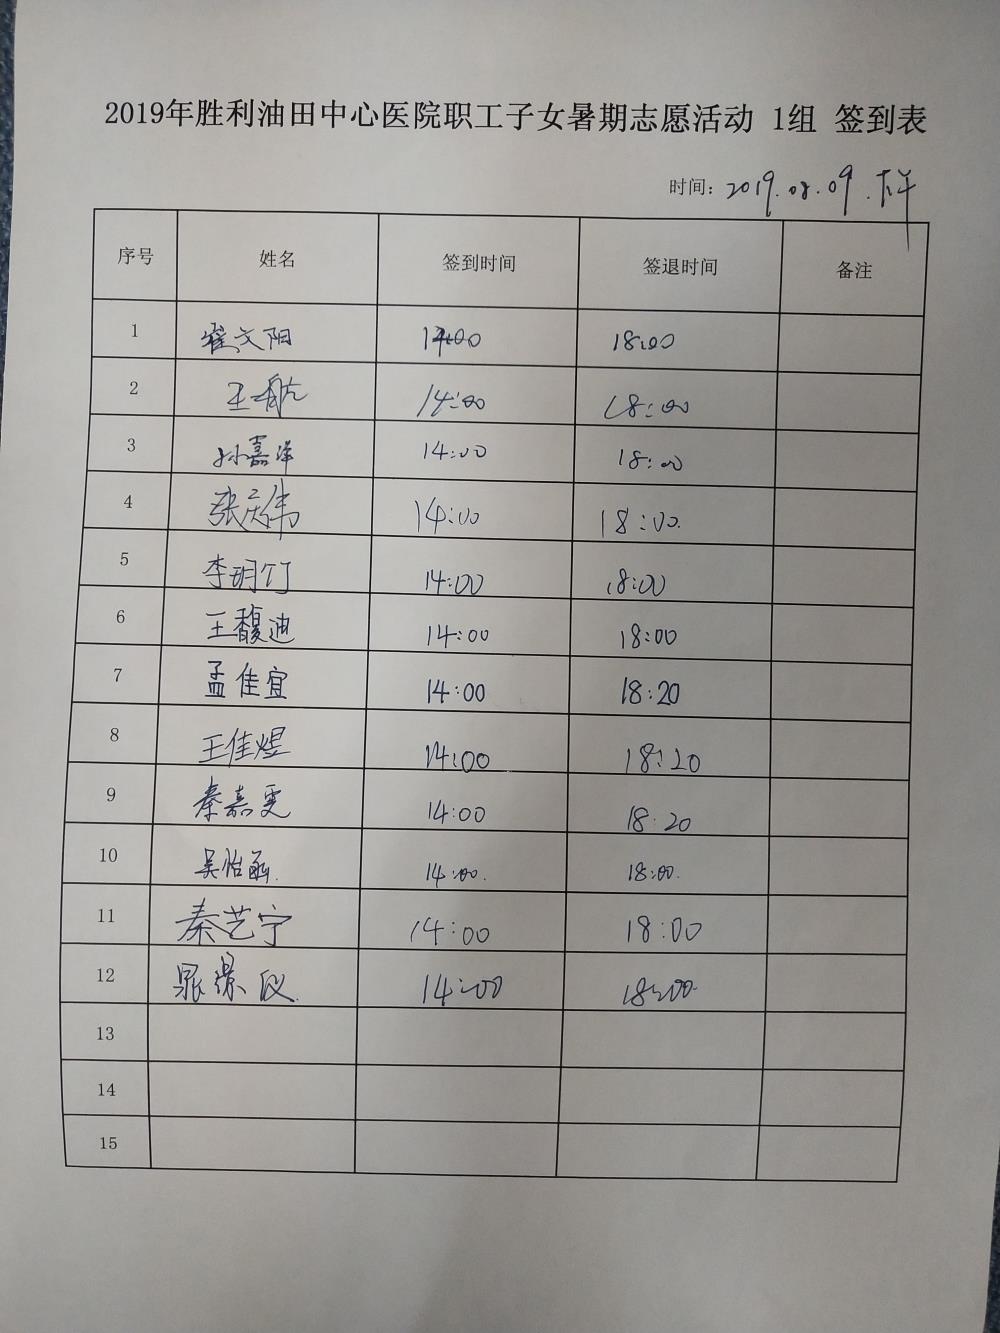 2019年胜利油田中心医院职工子女暑期志愿活动 1组 签到表
时间：2019.08.09.下午
序号 姓名 签到时间 签退时间 备注
1 崔文阳 14:00 18:00
2 王一航 14:00 18:00
3 孙嘉泽 14:00 18:00
4 张庆伟 14:00 18:00
5 李玥饤 14:00 18:00
6 王馥迪 14:00 18:00
7 孟佳宜 14:00 18:20
8 王佳煜 14:00 18:20
9 秦嘉雯 14:00 18:20
10 吴怡函 14:00 18:00
11 秦艺宁 14:00 18:00
12 14:00 18:00
13
14
15